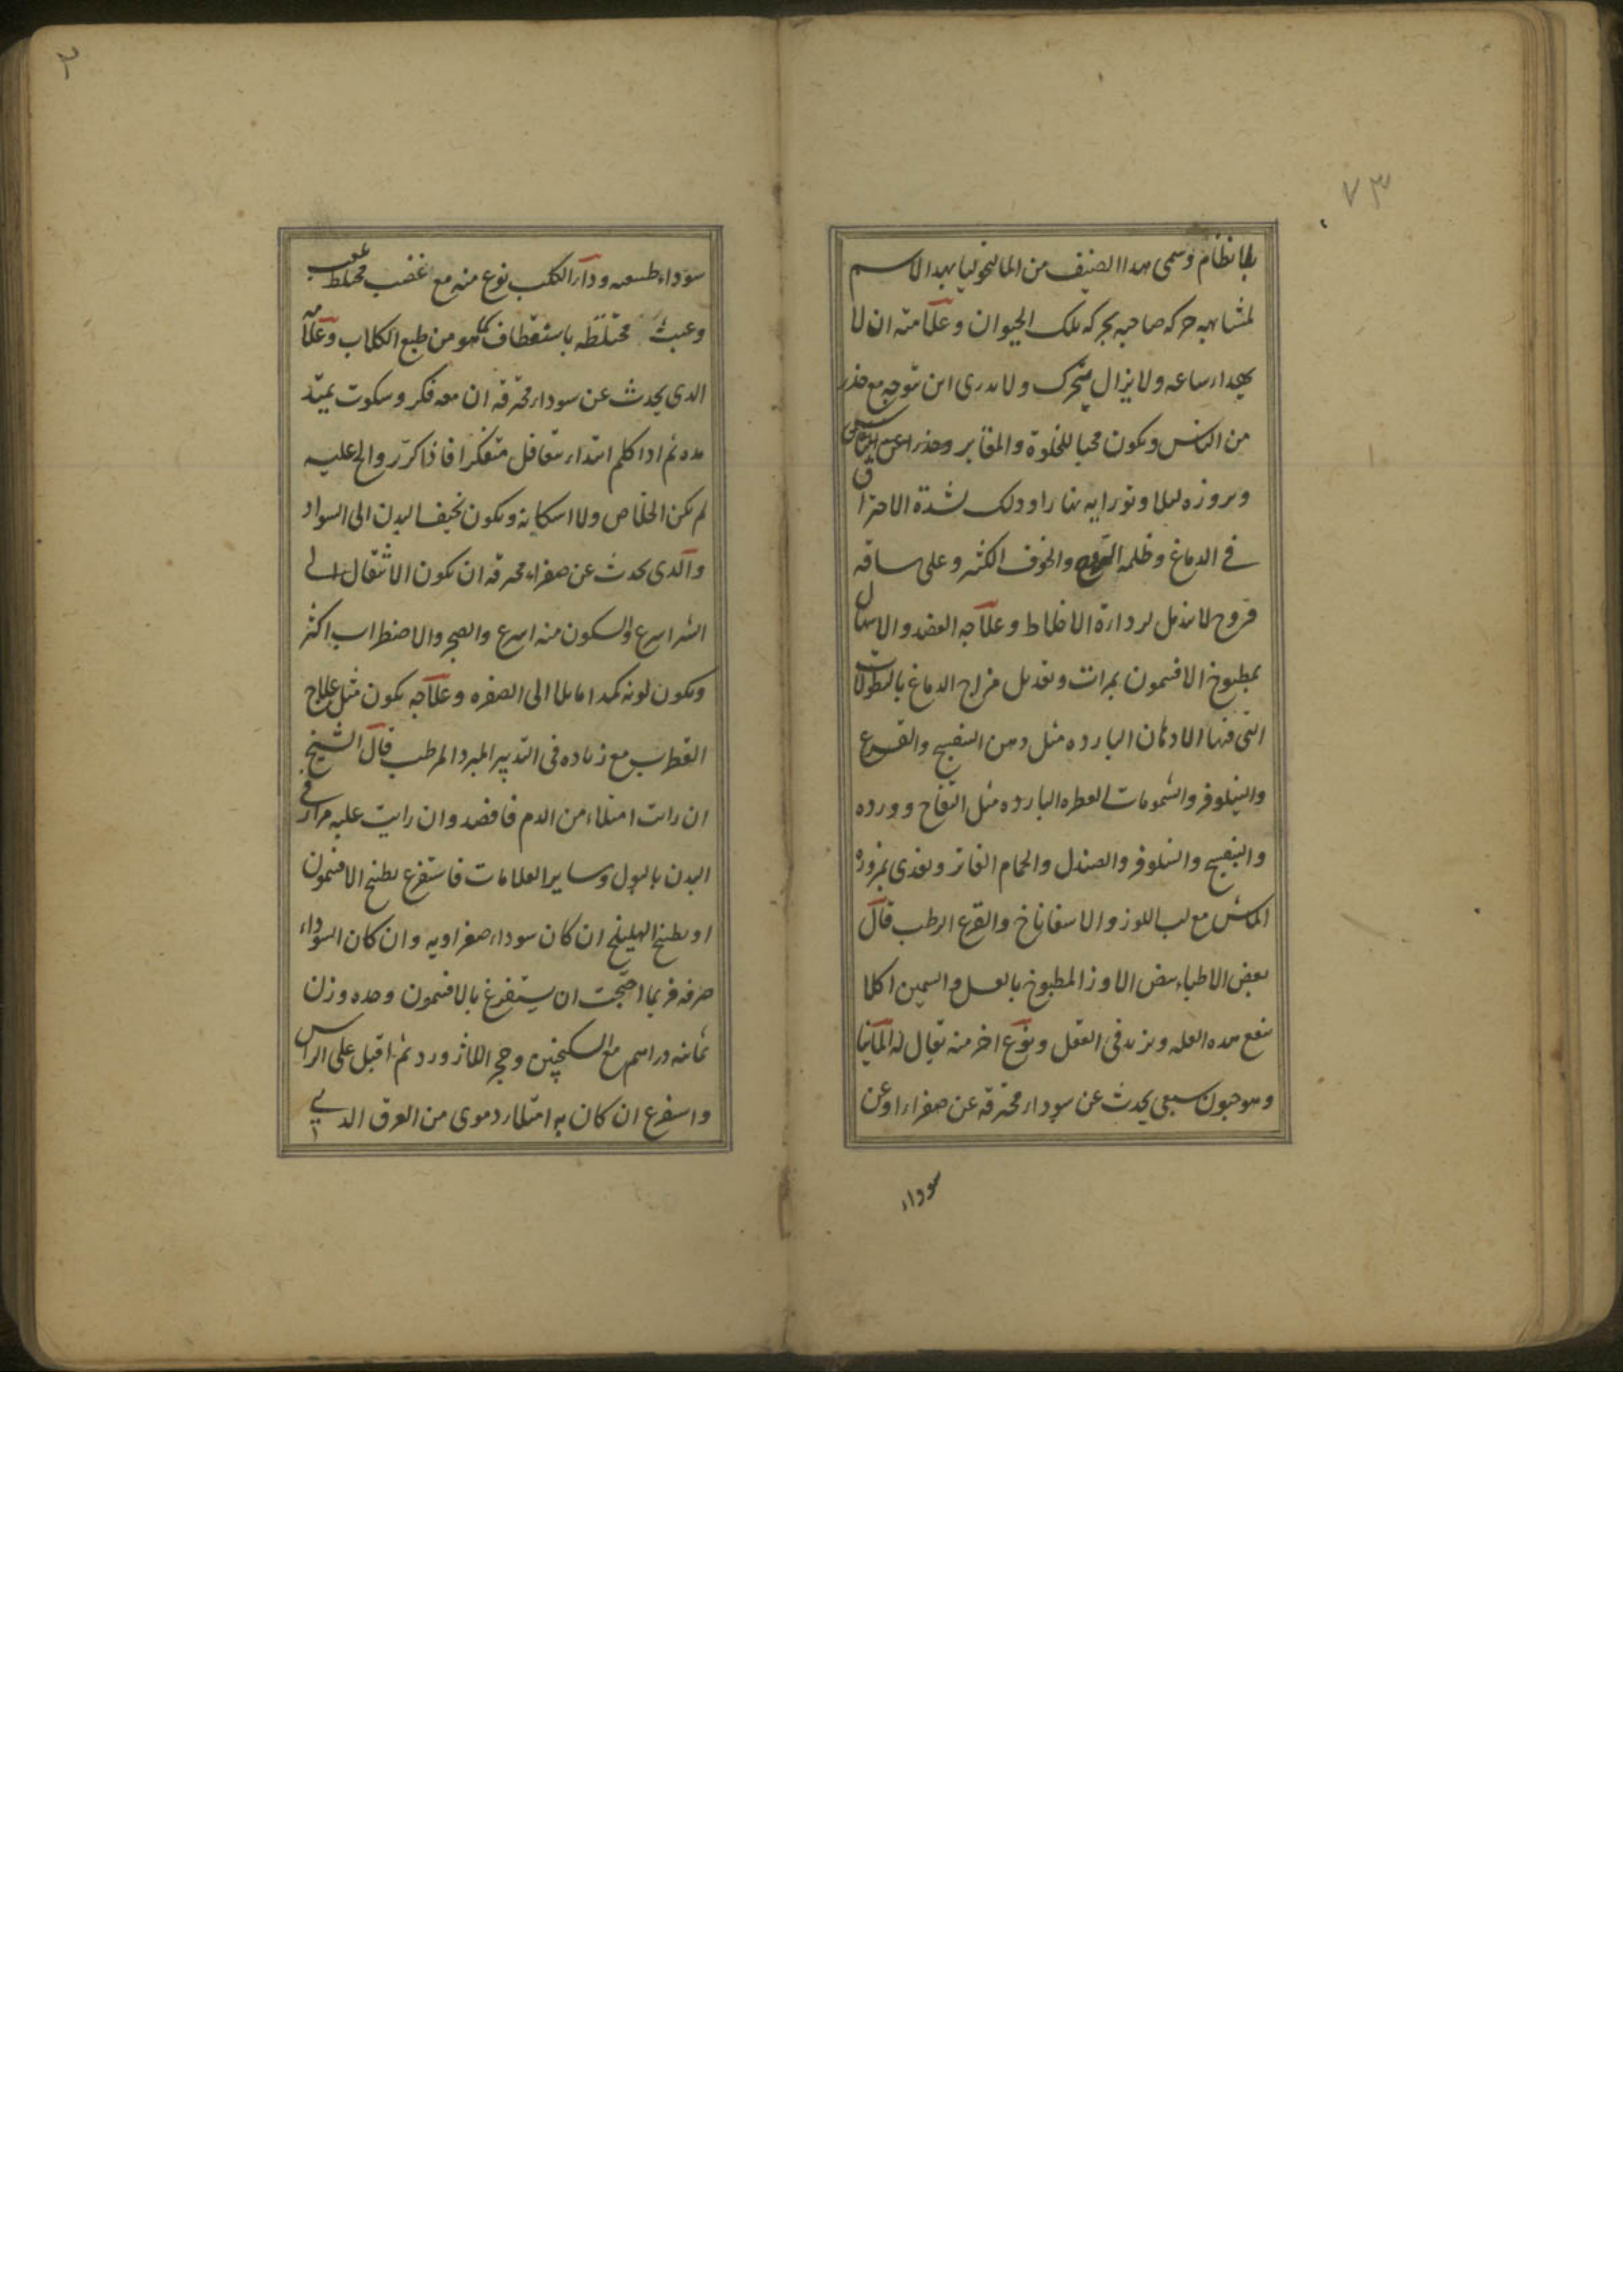 ٧٣
بلا نظام وسمى هذا الصنيف من الماليخوليا بهذا الاسم
لمشابهه حركه صاحبه بحركه تلك الحيوان وعلامته ان لا
يهدا ساعه ولا يزال يتحرك ولا يدرى اين يتوجه مع حذر
من الناس ويكون محبا للخلوة والمقابر وحذرا عن
وبروزه ليلا وتواريه نهارا وذلك لشدة الاحتراق
فى الدماغ وظلمه الروح والخوف الكثير وعلى ساقه
قروح لا تندمل لرداءة الاخلاط وعلاجه الفصد والاسهال
بمطبوخ الافتيمون بمرات وتعديل مزاج الدماغ بالنطولات
التى فيها الادهان البارده مثل دهن البنفسج والقرع
والنيلوفر والشمومات العطره البارده مثل التفاح وورده
والبنفسج والنيلوفر والصندل والحمام الفاتر وتغذى بمزورة
الماش مع لب اللوز والاسفاناخ والقرع الرطب قال
بعض الاطباء بيض الاوز المطبوخ بالعسل والسمين اكلا
ينفع هذه العله ويزيد فى العقل ونوع اخر منه يقال له المانيا
وهو جنون سبعى يحدث عن سوداء محترقه عن صفراء او عن
سوداء
٢
سوداء طبيعيه وداء الكلب نوع منه مع غضب مختلط بلعب
وعبث مختلطه باستعطاف كما هو من طبع الكلاب وعلامه
الذى يحدث عن سوداء محترقه ان معه فكر وسكوت يمتد
مده ثم اذا كلم ابتداء يتعاقل متفكرا فاذا كرر والح عليه
لم يكن الخلاص ولا اسكاته ويكون نحيف البدن الى السواد
والذى يحدث عن صفراء محترقه ان يكون الانتقال الى
الشر اسرع والسكون منه اسرع والضجر والاضطراب اكثر
ويكون لونه كمدا مايلا الى الصفره وعلاجه يكون مثل علاج
القطرب مع زياده فى التدبير المبرد المرطب قال الشيخ
ان رايت امتلاء من الدم فافصد وان رايت غلبه مرار فى
البدن بالبول وساير العلامات فاستفرغ بطبخ الافتيمون
او بطبخ الهليلج ان كان سوداء صفراويه وان كان السوداء
صرفه فربما احتجت ان يستفرغ بالافتيمون وحده وزن
ثمانيه دراهم مع السكنجبين وحجر اللازورد ثم اقبل على الراس
واستفرغ ان كان به امتلاء دموى من العرق الذى